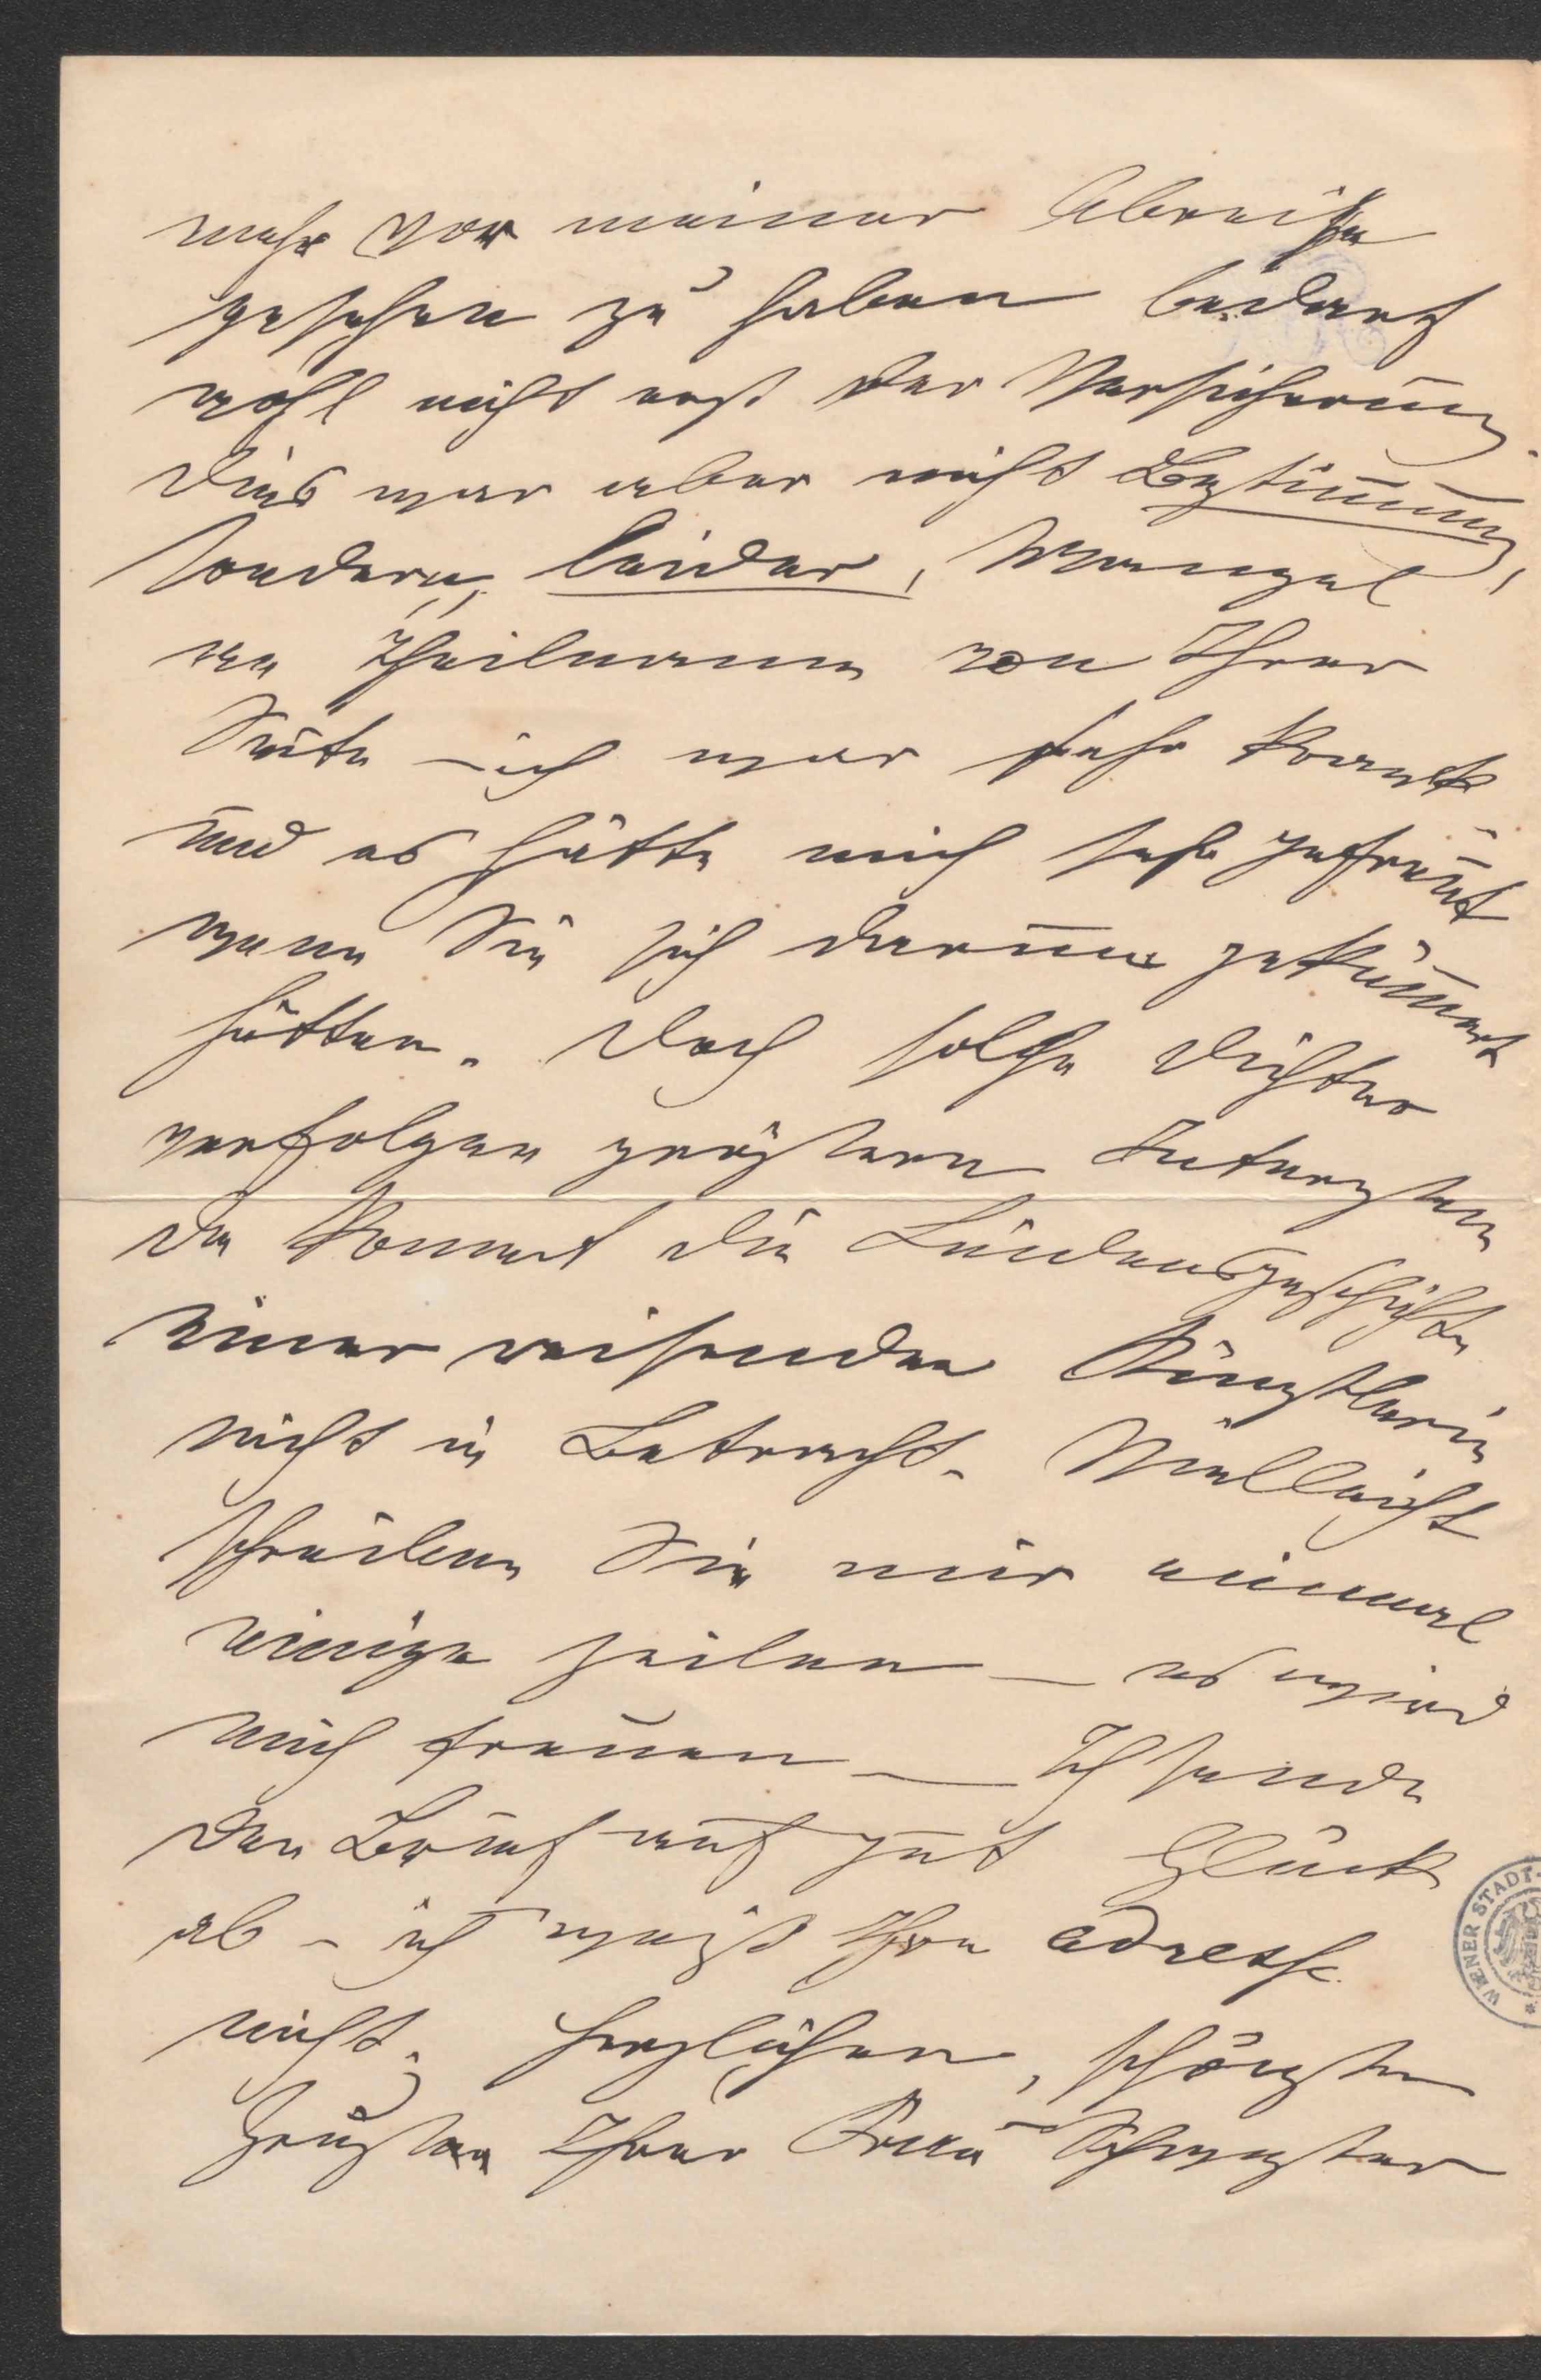 mehr vor meiner Abreise
gesehen zu haben bedarf
wohl nicht erst der Versicherung.
Dies war aber nicht Bestimmung,
sondern, leider, Mangel
an Theilnamme von Ihrer
Seite – ich war sehr krank
und es hätte mich sehr gefreut
wenn Sie sich darum gekümmert
hätten. Doch solche Dichter
verfolgen größere Interessen
da kommt die Leidensgeschichte
einer reisenden Künstlerin
nicht in Betracht. Vielleicht
schreiben Sie mir einmal
einige Zeilen – es wird
mich freuen – Ich sende
den Brief auf gut Glück
ab – ich weiß Ihre Adresse
nicht. Herzlichen, schönsten
Ihrer Frau Schwester
WIENER STADT-